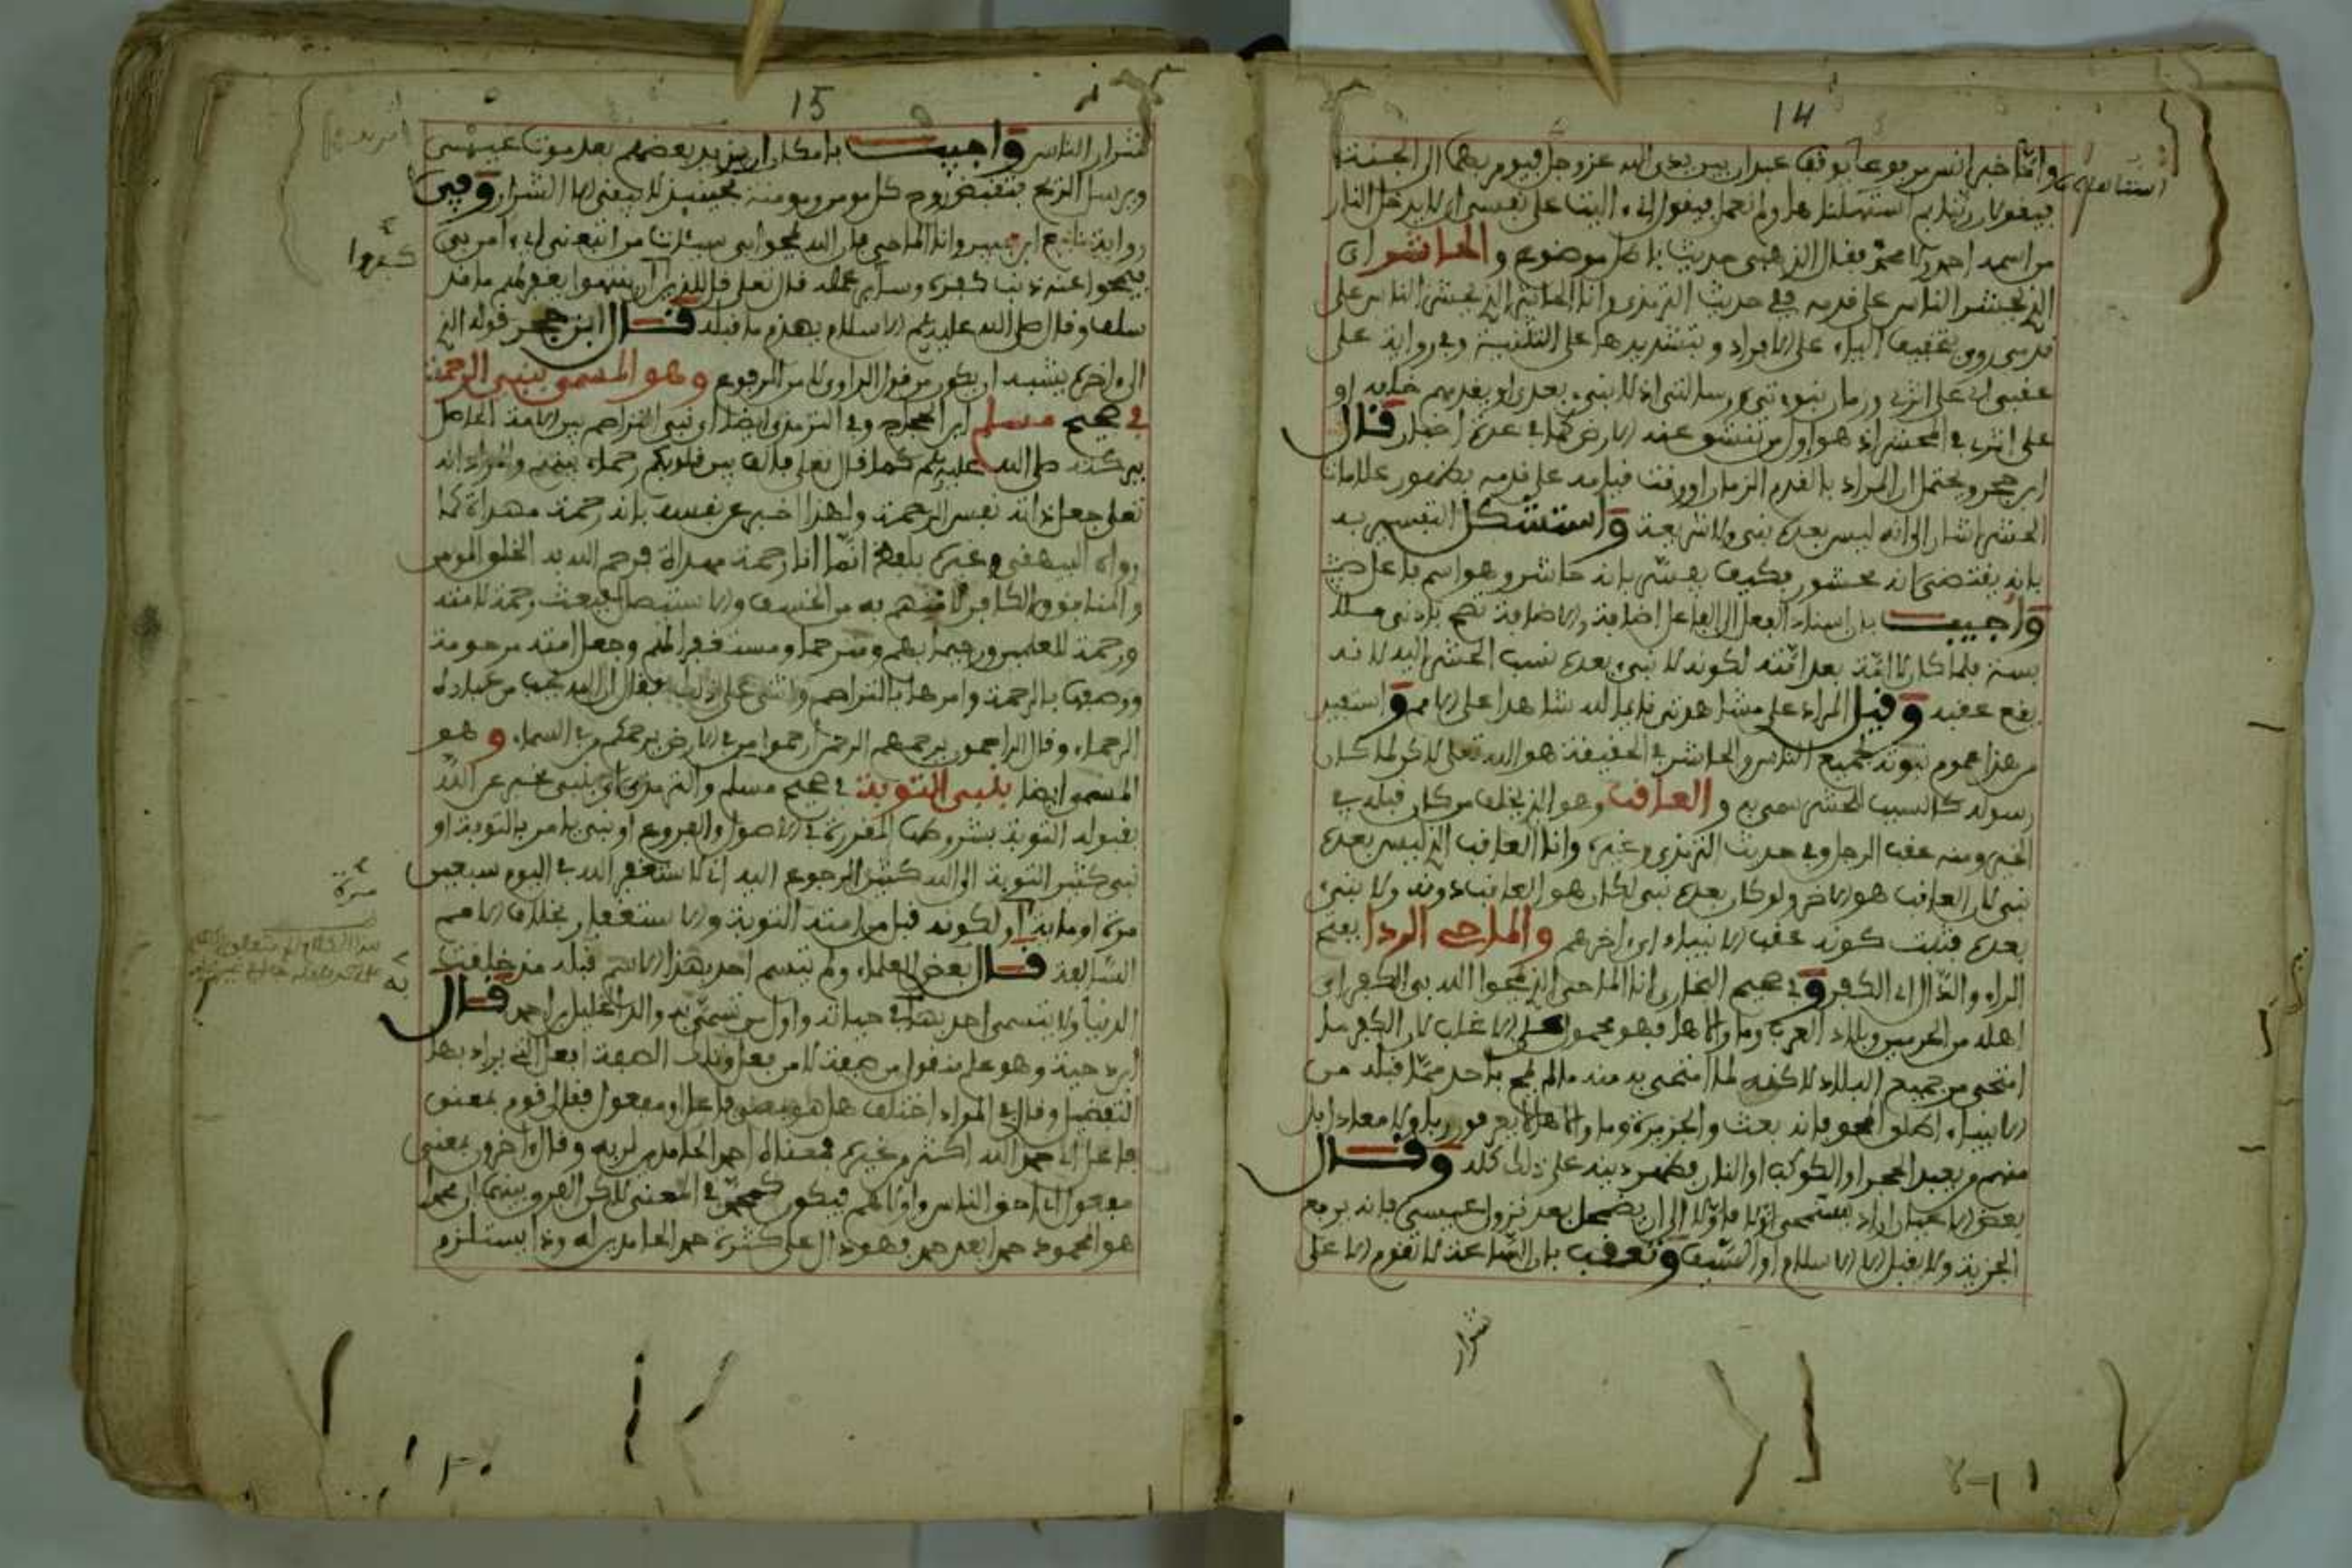 14
وامّا خبر انس مرفوعا يوقف عبدان بين يدى الله عز وجل فيومر بهما الى الجنة
فيقولان ربنا بم استاهلنا ولم نعمل فيقول الله اليت على نفسى ان لا يدخل النار
من اسمه احمد ولا محمّد فقال الذهبى حديث باطل موضوع والحاشر اى
الذى يحشر الناس على قدمه فى حديث الترمذى وانا الحاشر الذى يحشر الناس على
قدمى روى بتخفيف الياء على الافراد وبتشديدها على التثنية وفى رواية على
عقبى اى على اثرى وزمان نبوتى ورسالتى اذ لا نبى بعدى او يقدمهم خلفه او
على اثره فى المحشر اذ هو اول من تنشق عنه الارض كما فى عدة اخبار قال
ابن حجر ويحتمل ان المراد بالقدم الزمان اى وقت قيامه على قدمه بظهور علامات
الحشر اشار الى انه ليس بعده نبى ولا شريعة واستشكل التفسير به
بانه يقتضى انه محشور فكيف يفسّر بانه حاشر وهو اسم فاعل
واجيب بان اسناد الفعل الى الفاعل اضافة والاضافة تصح بادنى ملا
بسة فلما كان لا امّة بعد امّته لكونه لا نبى بعده نسب الحشر اليه لانه
يقع عقبه وقيل المراد على مشاهدتى قائما لله شاهدا على الامم واستفيد
من هذا عموم نبوته لجميع الناس والحاشر فى الحقيقة هو الله تعلى لاكن لما كان
رسوله كالسبب للحشر سمى به والعاقب وهو الذى يخلف من كان قبله فى
الخير ومنه عقب الرجل وفى حديث الترمذى وغيره وانا العاقب الذى ليس بعده
نبى لان العاقب هو الاخر ولو كان بعده نبى لكان هو العاقب دونه ولا نبى
بعده فثبت كونه عقب الانبياء اى اخرهم والماحى الردا بفتح
الراء والدّال اى الكفر وفى صحيح البخارى انا الماحى الذى يمحوا الله بى الكفر اى
اهله من الحرمين وبلاد العرب وما والاها فهو محمول على الاغلب لان الكفر ما
امتحى من جميع البلاد لاكنه لما امتحى به منه ما لم يمح باحد ممّا قبله من
الانبياء اطلق المحو فانه بعث والجزيرة وما والاها لا يعرفون ربا ولا معادا بل
منهم من يعبد الحجر او الكوكب او النار فظهر دينه على ذلك كله وقال
بعض الاعيان اراد يمحى اوّلا فاوّلا الى ان يضمحل بعد نزول عيسى فانه يرفع
الجزية ولا يقبل الا الاسلام او السّيف وتعقب بان السّاعة لا تقوم الا على
شرار
15
شرار الناس واجيب بامكان ان يزيد بعضهم بعد موت عيسى
ويرسل الريح فتقبض روح كل مومن ومومنة فحينئذ لا يبقى الا الشرار وفى
رواية نافع ابن جبير وانا الماحى فان الله يمحوا بى سيئات من اتبعنى اى امن بى
فيمحوا عنه ذنب كفره وسائر عمله قال تعلى قل للذين ان ينتهوا يغفر لهم ما قد
كفروا
سلف وقال صلى الله عليه وسلم الاسلام يهدم ما قبله قال ابن حجر قوله الذى
الى اخره يشبه ان يكون من قول الراوى لا من المرفوع وهو المسمى بنبى الرحمة
فى صحيح مسلم ابن الحجاج وفى الترمذى ايضا اى نبى التراحم بين الامة الحاصل
ببركته صلى الله عليه وسلم كما قال تعلى فالف بين قلوبكم رحماء بينهم والمراد انه
تعلى جعل ذاته نفس الرحمة ولهذا اخبر عن نفسه بانه رحمة مهداة كما
رواه البيهقى وغيره بلفظ انّما انا رحمة مهداة فرحم الله به الخلق المومن
والمنافق والكافر لامنهم به من الخسف والاستيصال فبعث رحمة لامته
ورحمة للعلمين ورحيما بهم ومترحما ومستغفرا لهم وجعل امته مرحومة
ووصفها بالرحمة وامرها بالتراحم واثنى على ذلك فقال ان الله يحب من عباده
الرحماء وقال الراحمون يرحمهم الرحمن ارحموا من فى الارض يرحمكم من فى السماء وهو
المسمى ايضا بنبى التوبة فى صحيح مسلم والترمذى اى نبى مخبر عن الله
بقبوله التوبة بشروطها المقررة فى الاصول والفروع او نبى يامر بالتوبة او
نبى كثير التوبة الى الله كثير الرجوع اليه انى لاستغفر الله فى اليوم سبعين
مرة
مرة او ماية او لكونه قبل من امته التوبة والاستغفار بخلاف الامم
السّالفة قال بعض العلماء ولم يتسم احد بهذا الاسم قبله منذ خلقت
به
الدنيا ولا تسمى احد بهذا فى حياته واول من تسمّى به والد الخليل بن احمد قال
ابن دحية وهو علم منقول من صفة لا من فعل وتلك الصفة افعل التى يراد بها
التفضيل وقال فى المراد اختلف هل هو بمعنى فاعل او مفعول فقال قوم بمعنى
فاعل اى حمد الله اكثر من غيره فمعناه احمد الحامدين لربه وقال اخرون بمعنى
مفعول اى احق الناس واولاهم فيكون كمحمّد فى المعنى لاكن الفرق بينهما ان محمدا
هو المحمود حمدا بعد حمد فهو دال على كثرة حمد الحامدين له وذا يستلزم